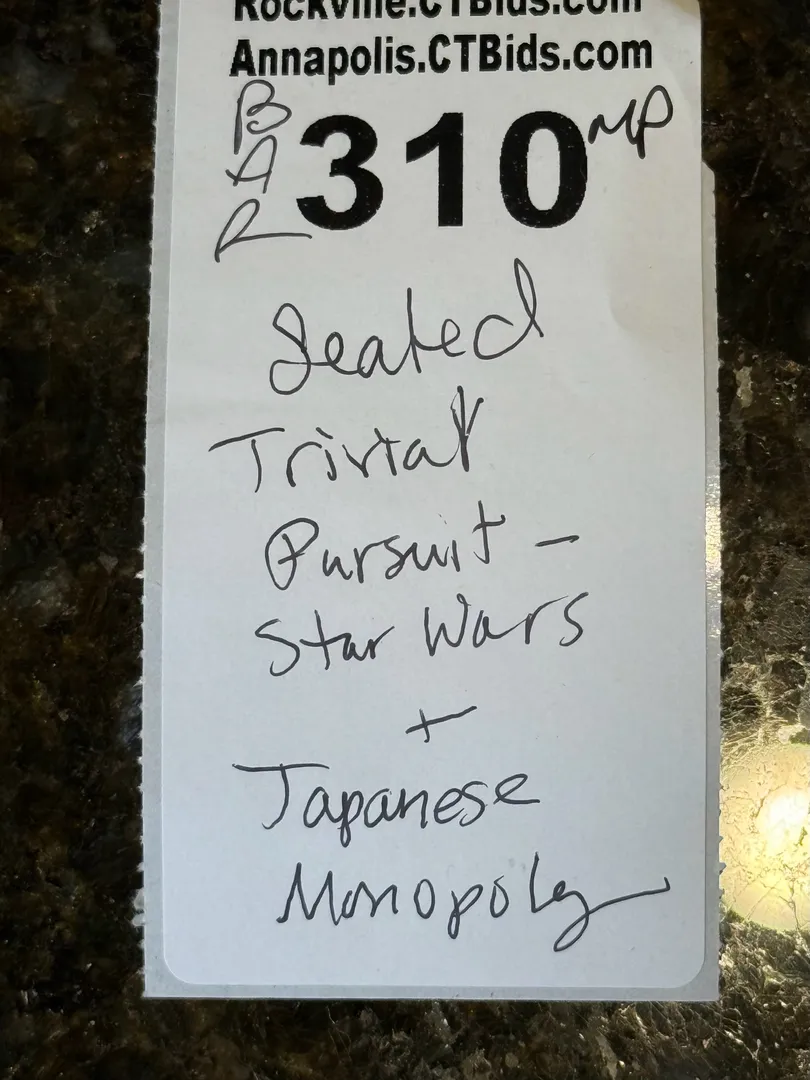 Rockville.CTBids.com
Annapolis.CTBids.com
BAR 310 MP
Sealed
Trivial
Pursuit -
Star Wars
+
Japanese
Monopoly